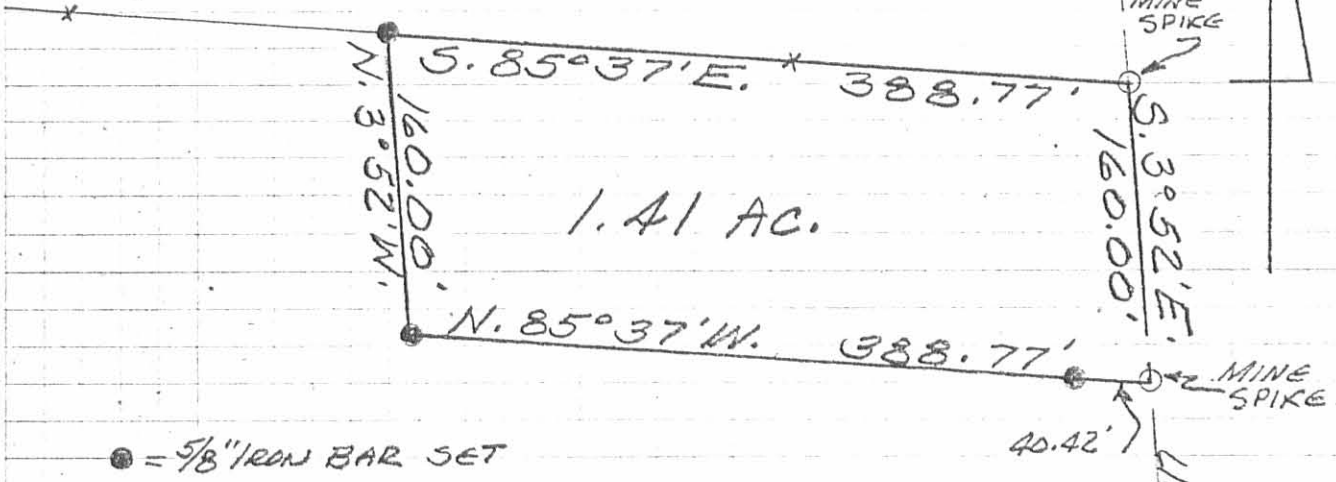 MINE
SPIKE
S. 85°37'E. 388.77'
N. 3°52'W.
160.00'
S. 3°52'E.
160.00'
1.41 AC.
N. 85°37'W. 388.77'
MINE
SPIKE
40.42'
= 5/8" IRON BAR SET